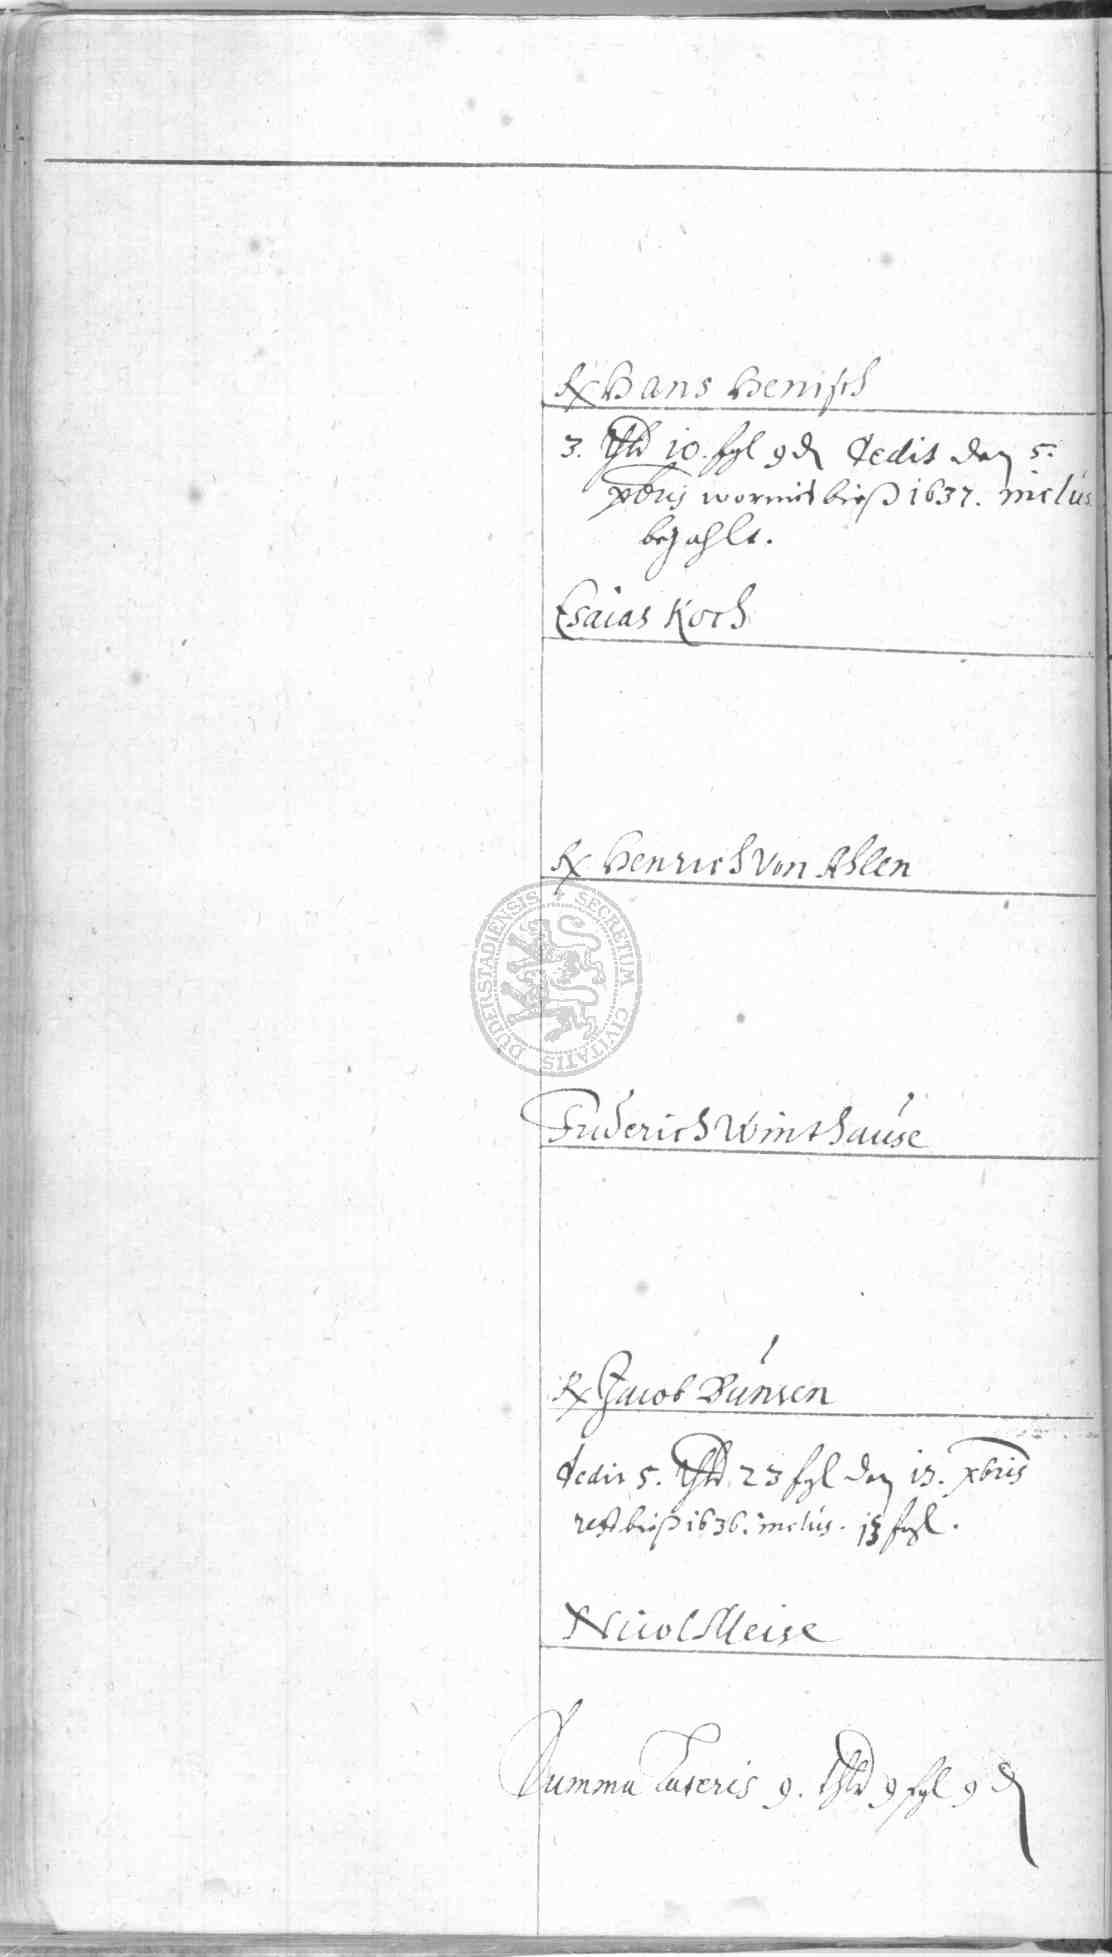 Rx Hans Henisch
3. thlr 10. sgl 9 ₰ dedit den 5.
xbris wormit bieß 1637. inclus.
bezahlt.
Esaias Koch
Rx Henrich Von Ahlen
SECRETUM CIVITATIS DUDERSTADIENSIS
Friderich Winthause
Rx Jacob Bunsen
dedit 5. thlr 23 sgl den 13. xbris
rest bieß 1636. inclus. 13 sgl.
Nicol Meise
Summa Lateris 9. thlr 9 sgl 9 ₰